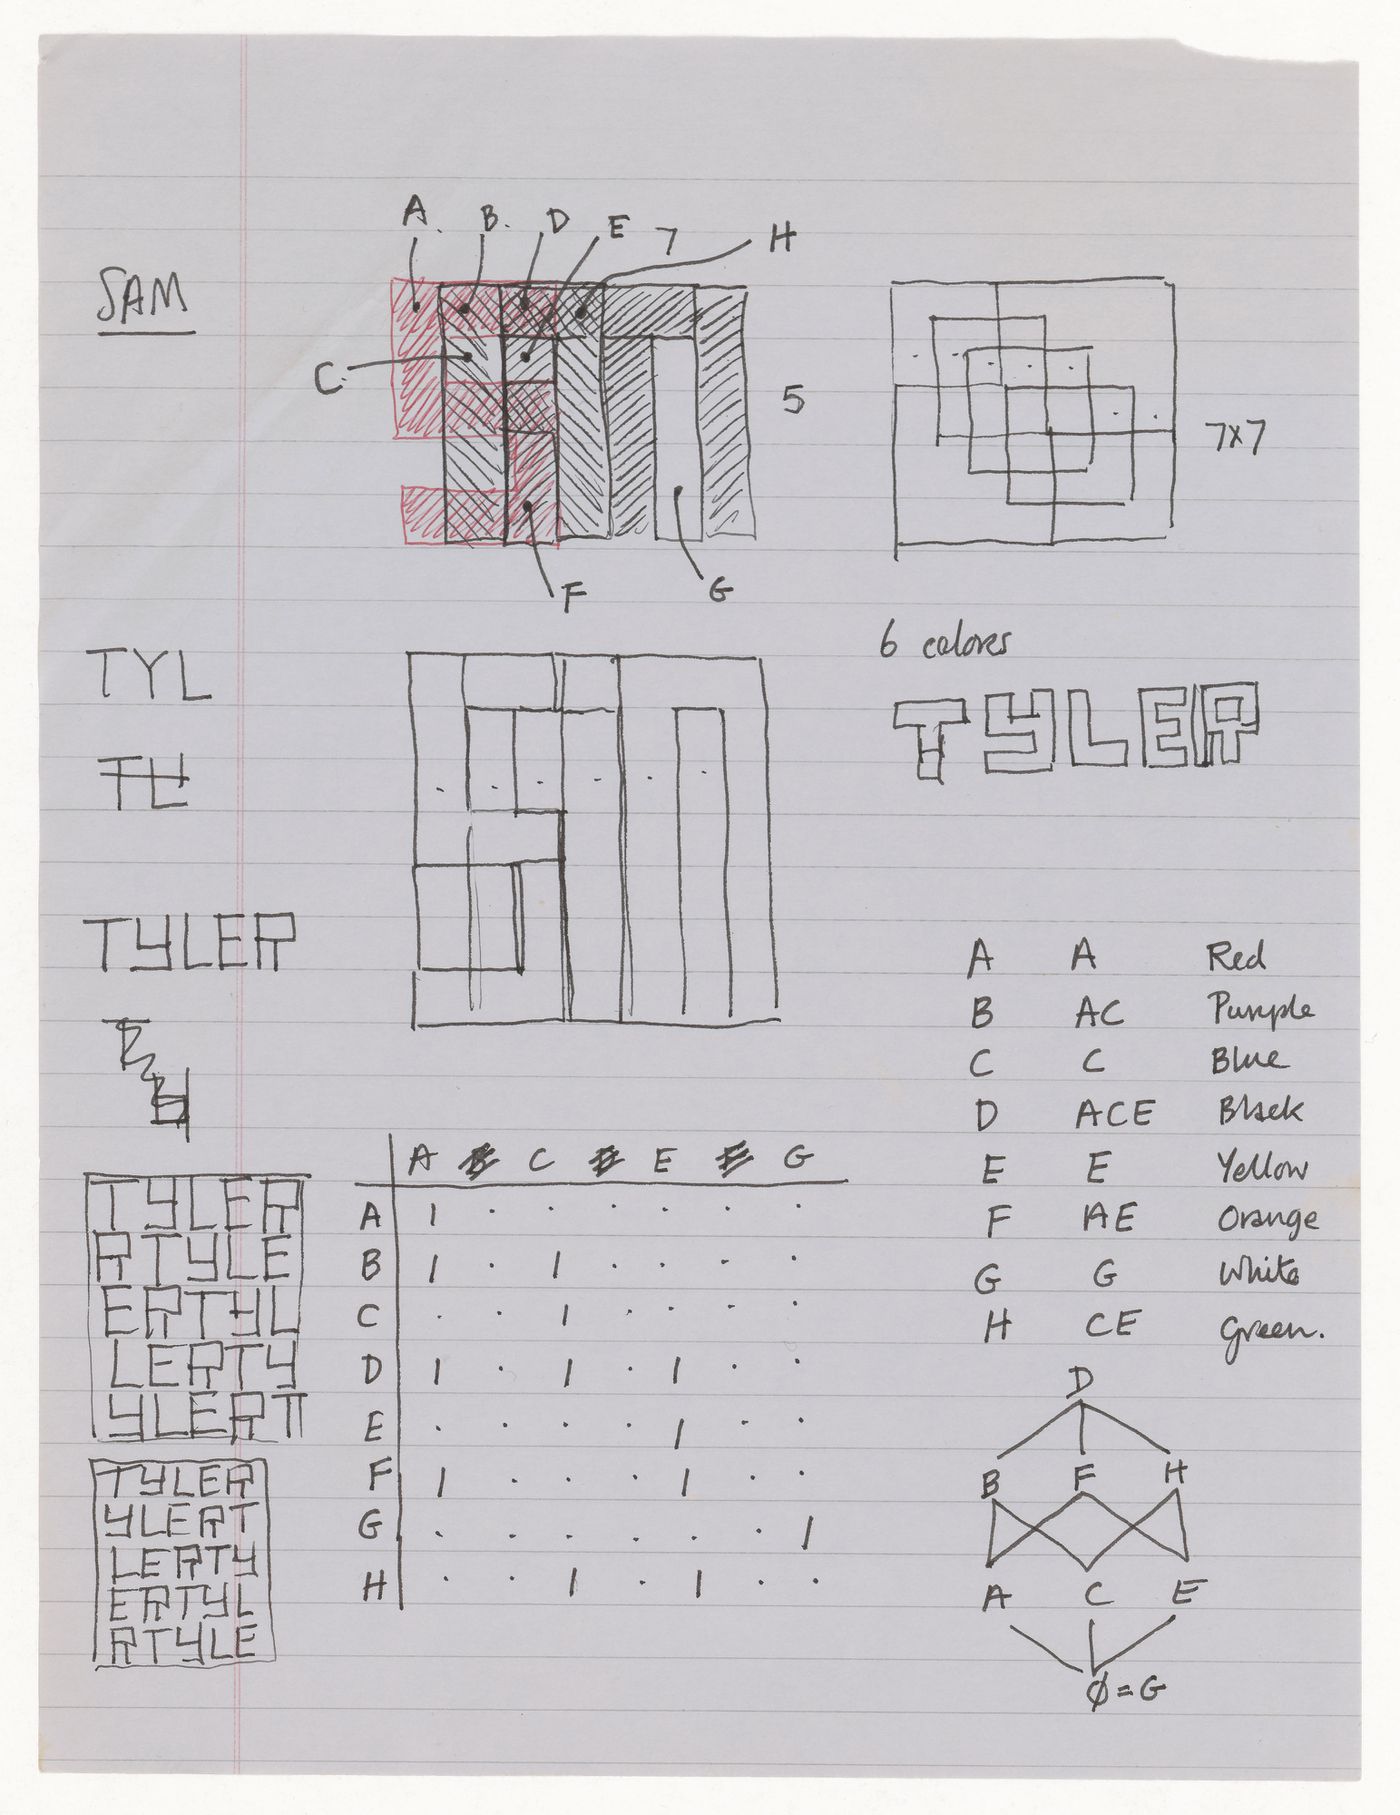 A. B. D E 7 H
SAM
C
5
7x7
F G
6 colores
TYL
TYLER
TY
TYLER
A A Red
B AC Purple
C C Blue
D ACE Black
E E Yellow
F AE Orange
G G White
H CE Green.
TYLER
RTYLE
ERTYL
LERTY
YLERT
TYLER
YLERT
LERTY
ERTYL
RTYLE
A C E G
A 1 · · · · · ·
B 1 · 1 · · · ·
C · · 1 · · · ·
D 1 · 1 · 1 · ·
E · · · · 1 · ·
F 1 · · · 1 · ·
G · · · · · · 1
H · · 1 · 1 · ·
D
B F H
A C E
Ø = G